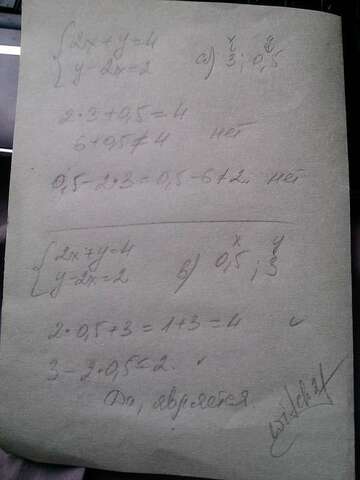 {2x+y=4
{y-2x=2
а) x y
3; 0,5
2·3+0,5=4
6+0,5≠4 нет
0,5-2·3=0,5-6≠2. нет
{2x+y=4
{y-2x=2
x y
0,5; 3
2·0,5+3=1+3=4 ✓
3-2·0,5=2. ✓
Да, является